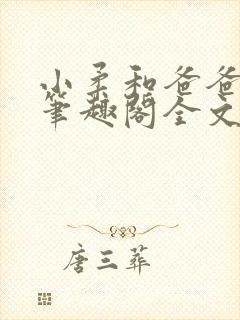 小柔和爸爸
笔趣阁全文
唐三葬